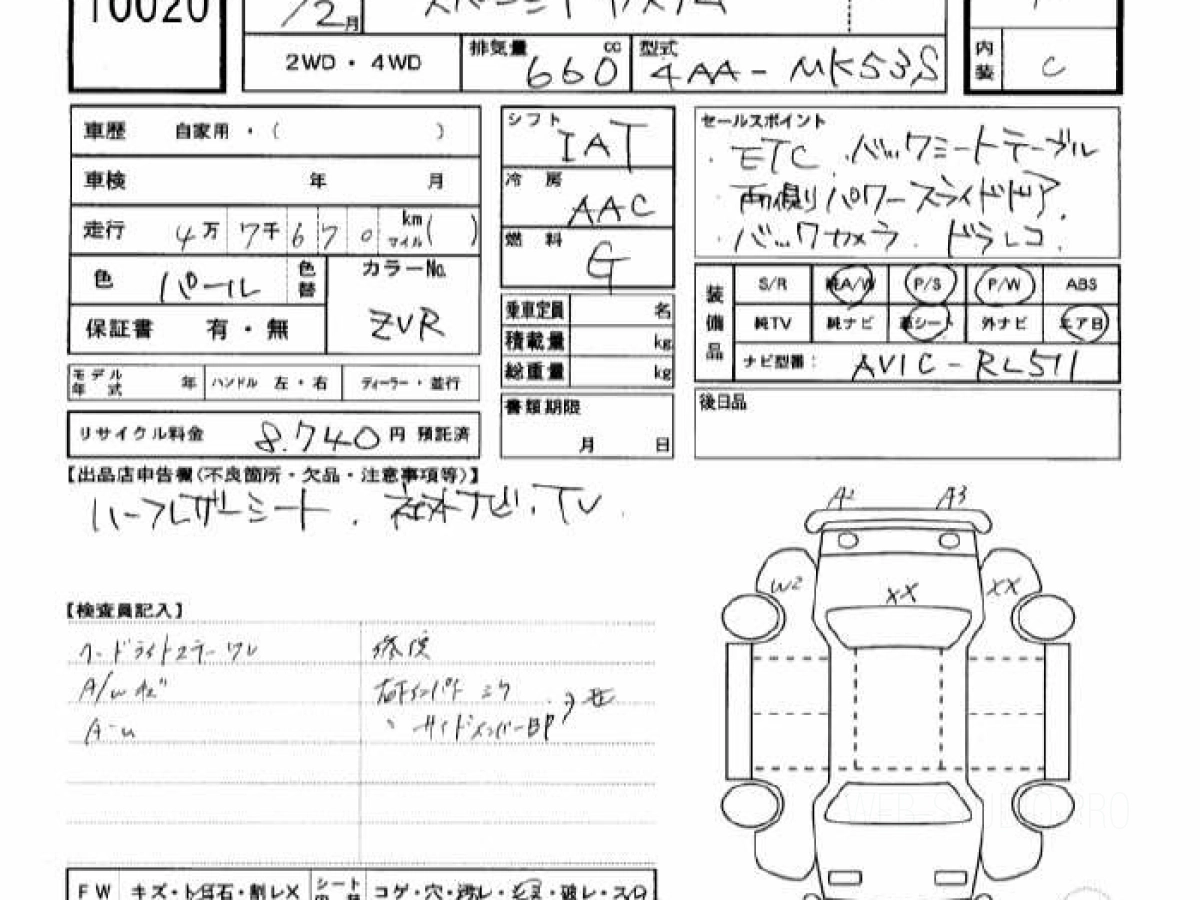 10020
12月 スペーシアカスタム
2WD・4WD 排気量 660 cc 型式 4AA-MK53S 内装 C
車歴 自家用・( )
車検 年 月
走行 4万7千670 km マイル( )
色 パール 色替 カラーNo. ZVR
保証書 有・無
モデル年式 年 ハンドル 左・右 ディーラー・並行
リサイクル料金 8.740円 預託済
シフト IAT
冷房 AAC
燃料 G
乗車定員 名
積載量 kg
総重量 kg
書類期限
月 日
セールスポイント
・ETC ・バックシートテーブル
両側パワースライドドア
・バックカメラ・ドラレコ
装備品 S/R 純A/W P/S P/W ABS
純TV 純ナビ 革シート 外ナビ エアB
ナビ型番: AVIC-RL511
後日品
【出品店申告欄(不良箇所・欠品・注意事項等)】
ハーフレザーシート. 社外ナビ.TV
A2 A3
W2 XX XX
【検査員記入】
ヘッドライトステーワレ 修復
A/Wキズ
サイドメンバー
FW キズ・ト石・割レX シート コゲ・穴・汚レ・シミ・破レ・スレ